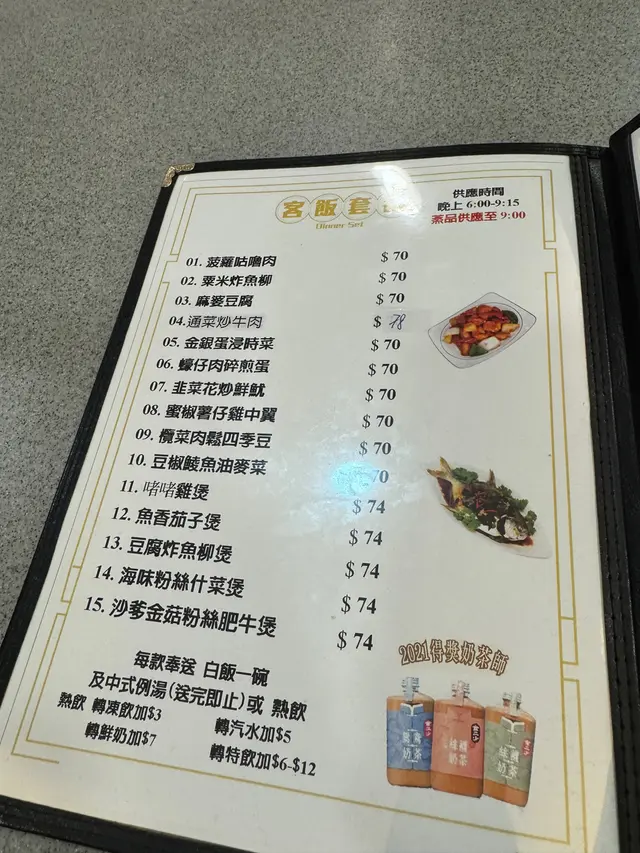 客飯套餐
Dinner Set
供應時間
晚上 6:00-9:15
蒸品供應至 9:00
01. 菠蘿咕嚕肉 $ 70
02. 粟米炸魚柳 $ 70
03. 麻婆豆腐 $ 70
04. 通菜炒牛肉 $ 78
05. 金銀蛋浸時菜 $ 70
06. 蠔仔肉碎煎蛋 $ 70
07. 韭菜花炒鮮魷 $ 70
08. 蜜椒薯仔雞中翼 $ 70
09. 欖菜肉鬆四季豆 $ 70
10. 豆椒鯪魚油麥菜 $ 70
11. 啫啫雞煲 $ 74
12. 魚香茄子煲 $ 74
13. 豆腐炸魚柳煲 $ 74
14. 海味粉絲什菜煲 $ 74
15. 沙爹金菇粉絲肥牛煲 $ 74
每款奉送 白飯一碗
及中式例湯(送完即止)或 熱飲
熱飲 轉凍飲加$3 轉汽水加$5
轉鮮奶加$7 轉特飲加$6-$12
2021得獎奶茶師
奶茶
奶茶
奶茶